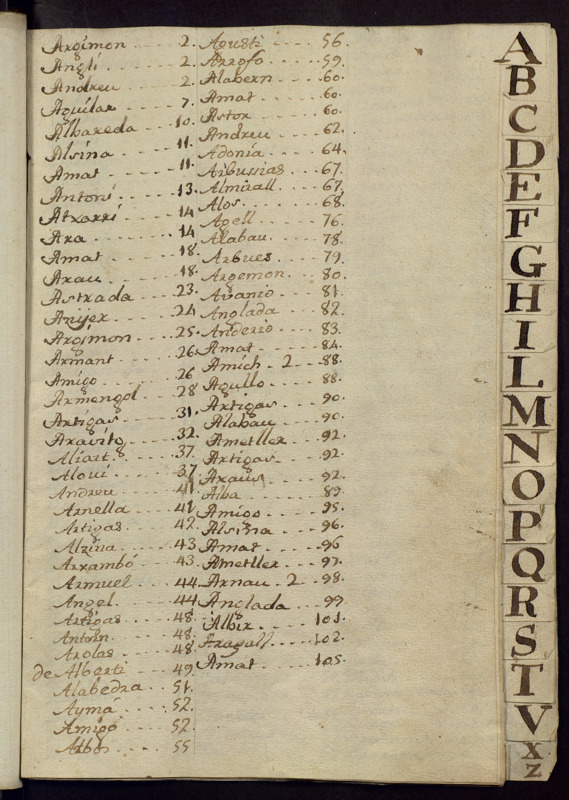 Argimon 2.
Anglí 2.
Andreu 2.
Aguilar 7.
Albareda 10.
Alsina 11.
Amat 11.
Antoni 13.
Atxarri 14
Ara 14
Amat 18.
Arau 18.
Astrada 23.
24
Argimon 25.
Armant 26.
Amigo 26
Armengol 28
Artigas 31.
32.
Aliart 37.
Aloui 37
Andreu 41
Arnella 41
Artigas 42.
Alzina 43
Arrambó 43.
Armuel 44
Angel 44
Artigas 48.
48.
Arolas 48.
de Alberti 49.
Alabedra 51.
Aymá 52.
Amigó 52.
55
Agusti 56.
59.
Alabern 60.
Amat 60.
Astor 60.
Andreu 62.
Adonia 64.
Arbussias 67.
Almirall 67.
Alos 68.
Agell 76.
Alabau 78.
Arbues 79.
Argemon 80.
81.
Anglada 82.
83.
Amat 84.
Amich 2 88.
Agullo 88.
Artigas 90.
Alabau 90.
Ametller 92.
Artigas 92.
92.
Alba 89.
Amigo 95.
Alsina 96.
Amat 96
Ametller 97.
Arnau 2 98.
Anglada 99
Albir 101.
102.
Amat 105.
A
B
C
D
E
F
G
H
I
L
M
N
O
P
Q
R
S
T
V
X
Z